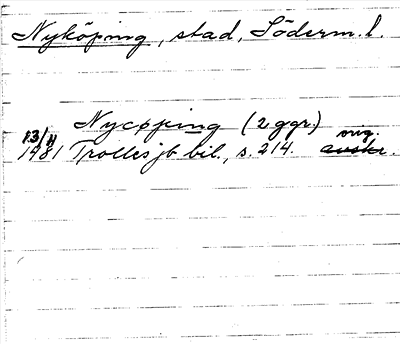 Nyköping, stad, Söderm. l.
Nycøping (2 ggr.)
13/11 1481 Trolles jb bil., s. 214. orig. avskr.